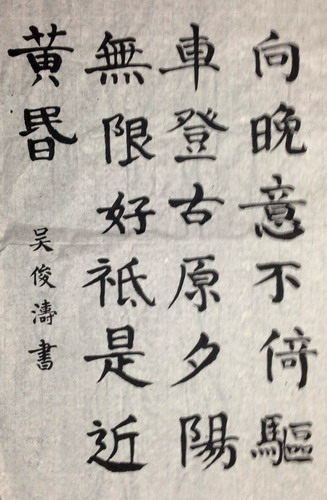 向晚意不倚驅
車登古原夕陽
無限好祗是近
黃昬
吴俊濤書